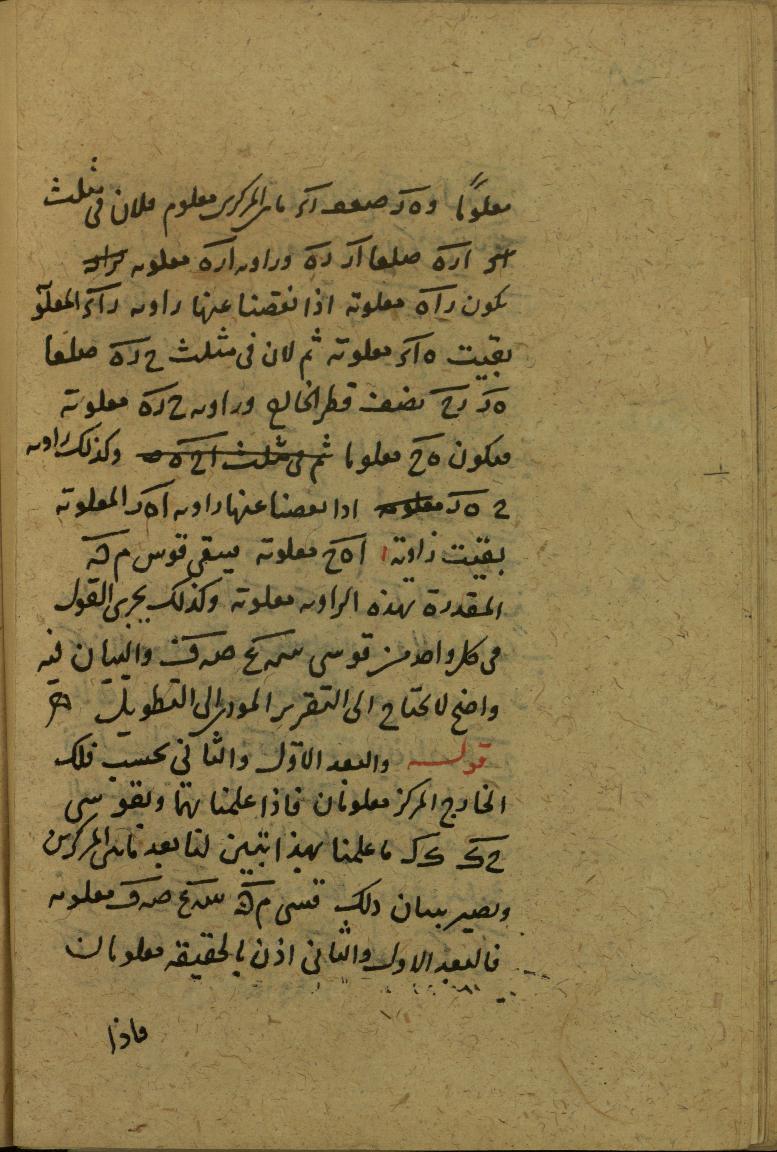 معلوما و ه د ضعف ا ر ما بين المركزين معلوم فلان فى مثلث
ا ر ه ضلعا ا ر ر ه وزاويه ا ر ه معلومه
تكون ر ا ه معلومة اذا نقصنا عنها زاويه ر ا ء المعلومة
بقيت ه ا ء معلومة ثم لان فى مثلث ح ر ه ضلعا
ه ر ر ح نصف قطر الخارج وزاويه ح ر ه معلومة
فيكون ه ح معلوما ثم فى مثلث ا ح ه وكذلك زاويه
ح ه ر معلومه اذا نقصنا عنها زاويه ا ه ر المعلومة
بقيت زاوية ا ه ح معلومة فيبقى قوس م ن
المقدرة بهذه الزاويه معلومة وكذلك يجرى القول
فى كل واحد من قوسى سمع صرف والبيان فيه
واضح لا يحتاج الى التقرير المودى الى التطويل
قوله والبعد الاول والثانى بحسب فلك
الخارج المركز معلومان فاذا علمنا هما وبقوسى
ح ك ك ل ما علمنا بهذا تبين لنا بعد ما بين المركزين
ويصير ببيان ذلك قسى م ن سع صرف معلومه
فالبعد الاول والثانى اذن بالحقيقه معلومان
فاذا